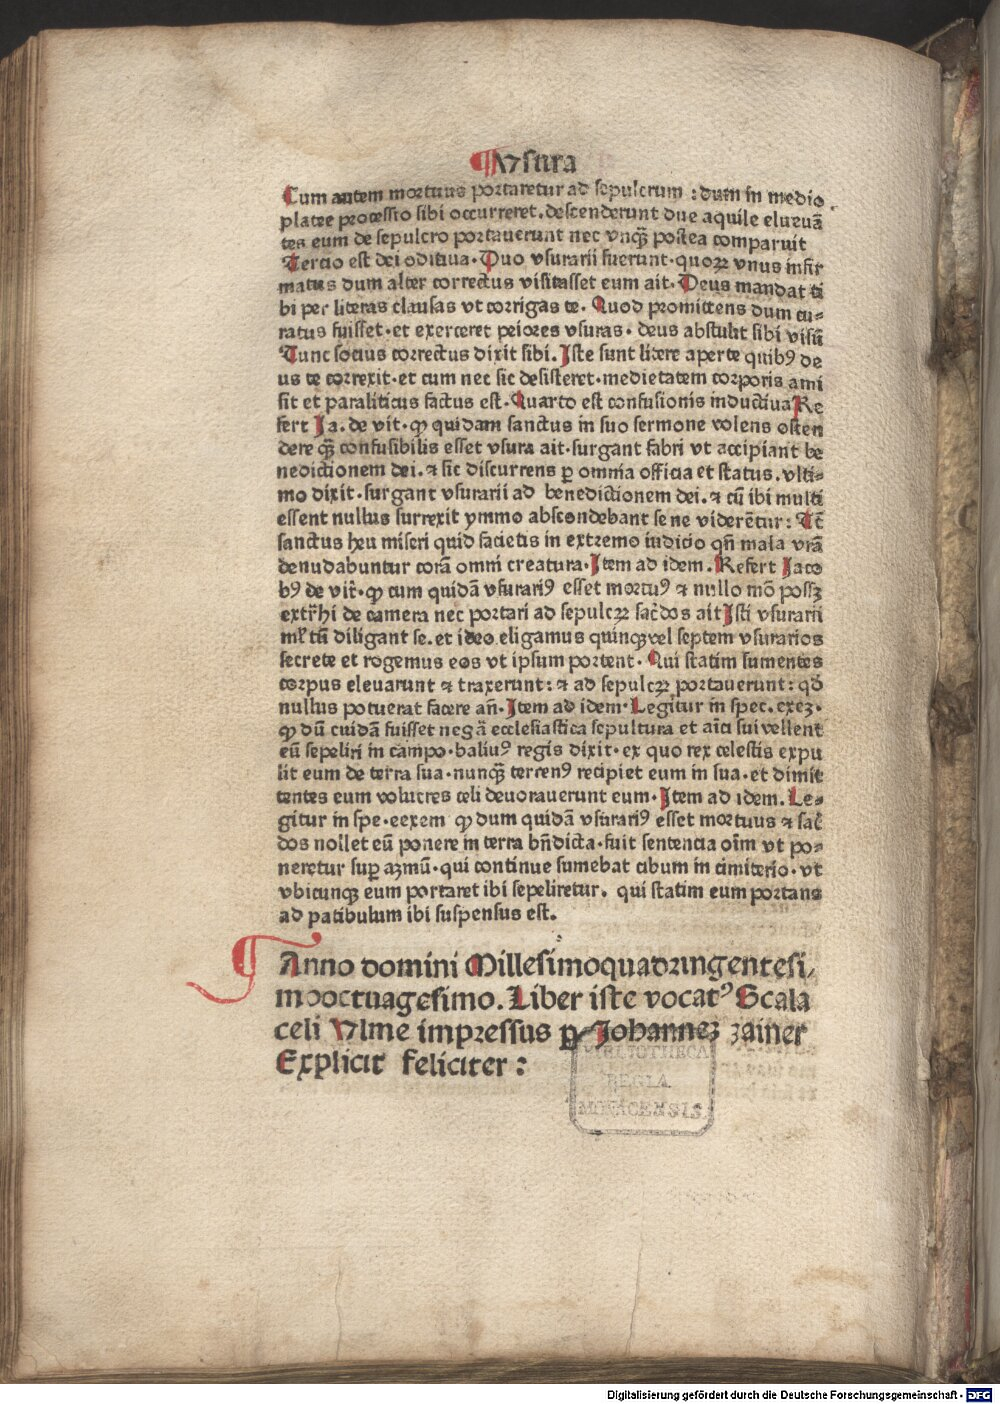 ¶Vsura
Cum autem mortuus portaretur ad sepulcrum : dum in medio
platee processio sibi occurreret. descenderunt due aquile eluruā
tes eum de sepulcro portauerunt nec vnqꝫ postea comparuit
Tercio est dei oditiua. Duo vsurarii fuerunt. quoꝝ vnus infir
matus dum alter correctus visitasset eum ait. Deus mandat ti
bi per literas clausas vt corrigas te. Quod promittens dum cu⸗
ratus fuisset. et exerceret peiores vsuras. deus abstulit sibi visū
Tunc socius correctus dixit sibi. Iste sunt litere aperte quibꝰ de
us te correxit. et cum nec sic desisteret. medietatem corporis ami
sit et paraliticus factus est. Quarto est confusionis inductiua Re
fert Ja. de vit. ꝙ quidam sanctus in suo sermone volens osten
dere qꝫ confusibilis esset vsura ait. surgant fabri vt accipiant be
nedictionem dei. ⁊ sic discurrens ꝑ omnia officia et status. vlti⸗
mo dixit. surgant vsurarii ad benedictionem dei. ⁊ cū ibi multi
essent nullus surrexit ymmo abscondebant se ne viderētur: Tc̄
sanctus heu miseri quid facietis in extremo iudicio qn̄ mala vrā
denudabuntur corā omni creatura. Item ad idem. Refert Jaco
bꝰ de vit. ꝙ cum quidā vsurariꝰ esset mortuꝰ ⁊ nullo mō possꝫ
extr̄hi de camera nec portari ad sepulcꝝ sac̄dos ait Isti vsurarii
ml̄tū diligant se. et ideo eligamus quinqꝫ vel septem vsurarios
secrete et rogemus eos vt ipsum portent. Qui statim sumentes
corpus eleuarunt ⁊ traxerunt: ⁊ ad sepulcꝝ portauerunt: qd̄
nullus potuerat facere an̄. Item ad idem. Legitur in spec. exeꝫ.
ꝙ dū cuidā fuisset negā ecclesiastica sepultura et aīci sui vellent
eū sepeliri in campo. baliuꝰ regis dixit. ex quo rex celestis expu
lit eum de terra sua. nunqꝫ terrenꝰ recipiet eum in sua. et dimit
tentes eum volucres celi deuorauerunt eum. Item ad idem. Le⸗
gitur in spe. eexem ꝙ dum quidā vsurariꝰ esset mortuus ⁊ sac̄
dos nollet eū ponere in terra bn̄dicta. fuit sentencia oīm vt po⸗
neretur suꝑ aꝫmū. qui continue sumebat cibum in cimiterio. vt
vbicunqꝫ eum portaret ibi sepeliretur. qui statim eum portans
ad patibulum ibi suspensus est.
¶ Anno domini Millesimoquadringentesi⸗
mooctuagesimo. Liber iste vocatꝰ Scala
celi Vlme impressus ꝑ Johanneꝫ zainer
Explicit feliciter :
BIBLIOTHECA
REGIA
MONACENSIS
Digitalisierung gefördert durch die Deutsche Forschungsgemeinschaft - DFG